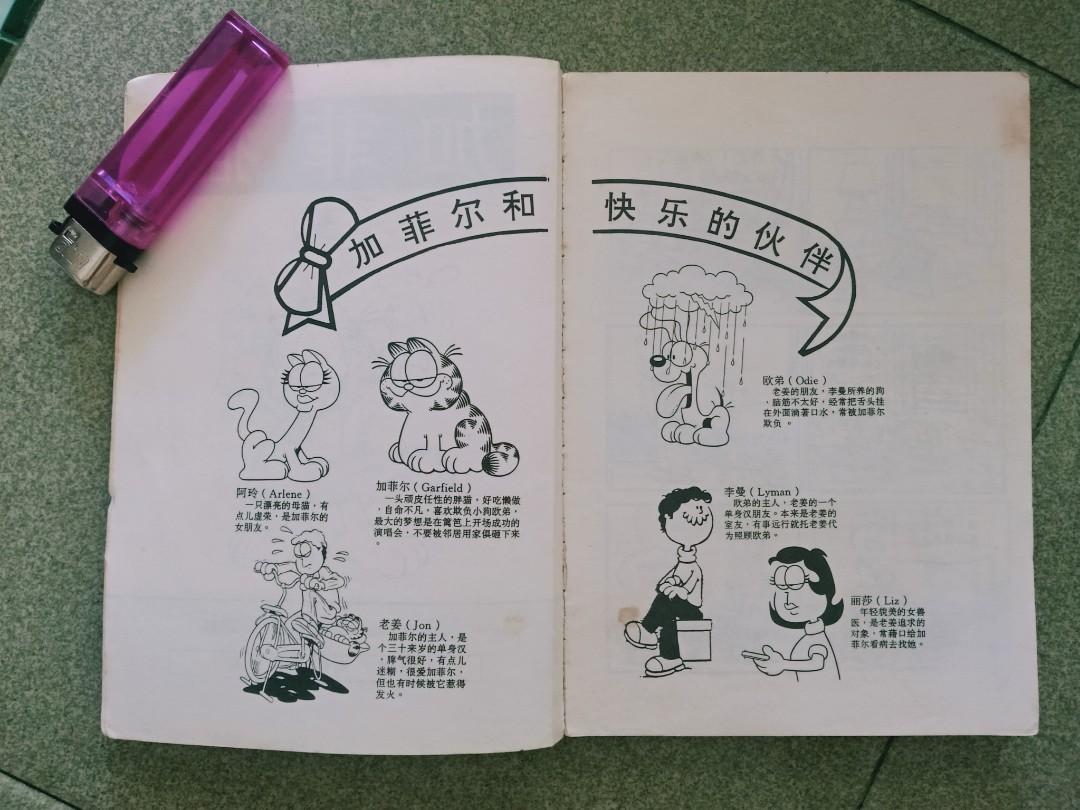 加菲尔和
快乐的伙伴
阿玲（Arlene）
一只漂亮的母猫，有
点儿虚荣，是加菲尔的
女朋友。
加菲尔（Garfield）
一头顽皮任性的胖猫，好吃懒做
，自命不凡，喜欢欺负小狗欧弟，
最大的梦想是在篱笆上开场成功的
演唱会，不要被邻居用家俱砸下来
。
老姜（Jon）
加菲尔的主人，是
个三十来岁的单身汉
，脾气很好，有点儿
迷糊，很爱加菲尔，
但也有时候被它惹得
发火。
欧弟（Odie）
老姜的朋友，李曼所养的狗
，脑筋不太好，经常把舌头挂
在外面淌著口水，常被加菲尔
欺负。
李曼（Lyman）
欧弟的主人，老姜的一个
单身汉朋友。本来是老姜的
室友，有事远行就托老姜代
为照顾欧弟。
丽莎（Liz）
年轻貌美的女兽
医，是老姜追求的
对象，常藉口给加
菲尔看病去找她。